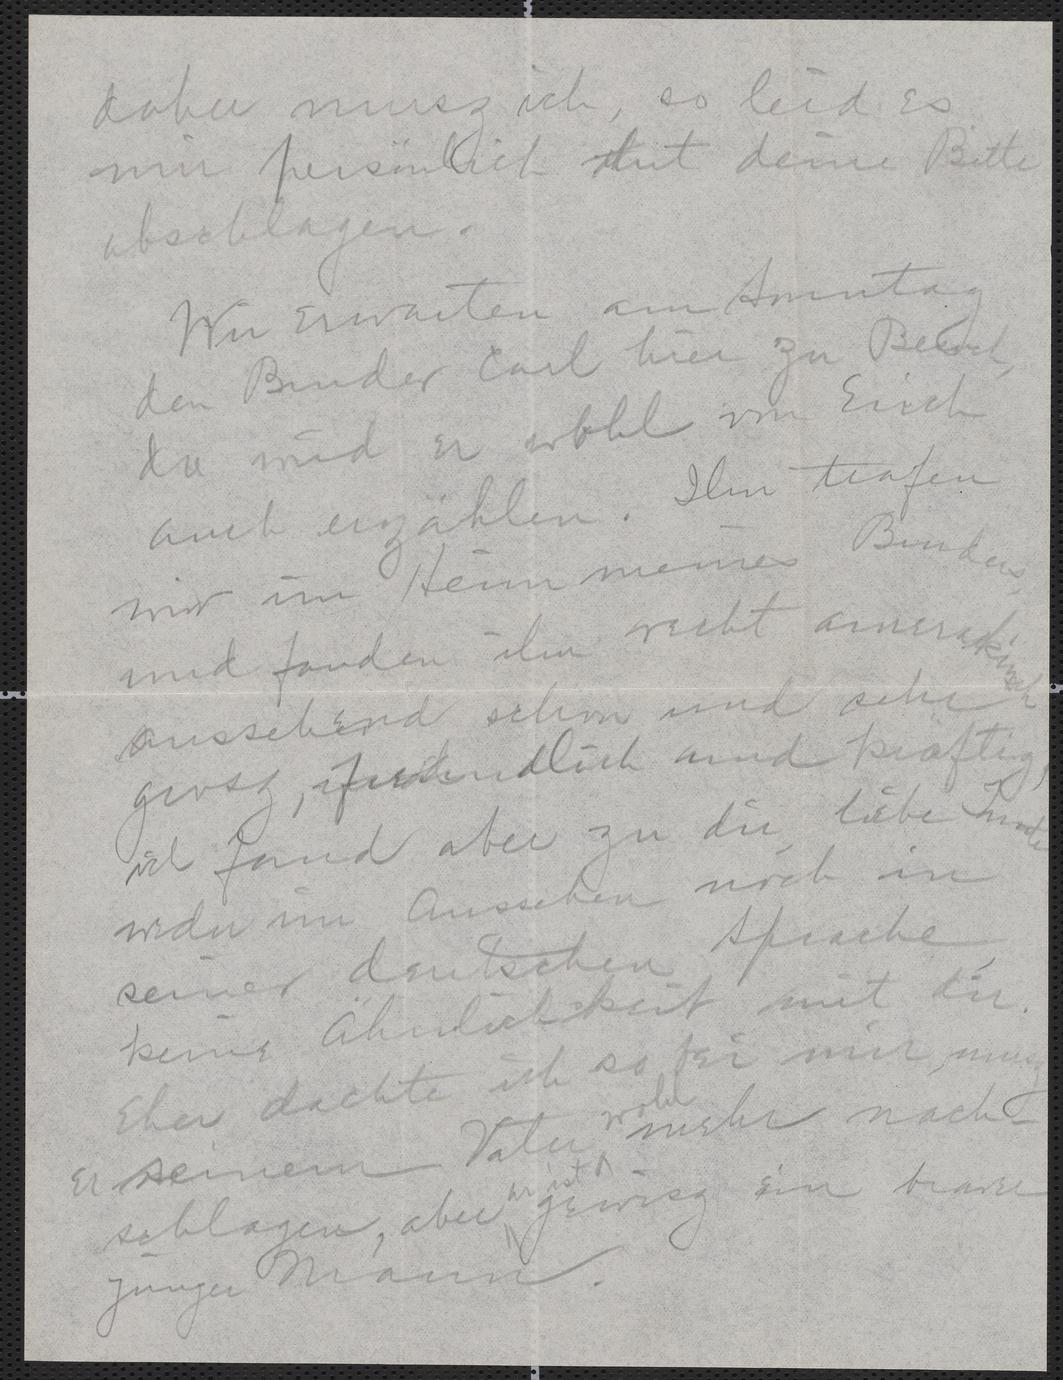 daher musz ich, so leid es
mir persönlich thut deine Bitte
abschlagen.
Wir erwarten am Sonntag
den Bruder Carl hier zu Besuch,
da wird er wohl von Erich
auch erzählen. Ihn trafen
wir im Heim meines Bruders,
und fanden ihn recht amerikanisch
aussehend schon und sehr
grosz, freundlich und kräftig,
ich fand aber zu dir, liebe
weder im Aussehen noch in
seiner deutschen Sprache,
keine Ähnlichkeit mit dir.
Eher dachte ich so bei mir, musz
er seinem Vater wohl mehr nach-
schlagen, aber er ist gewisz ein braver
junger Mann.